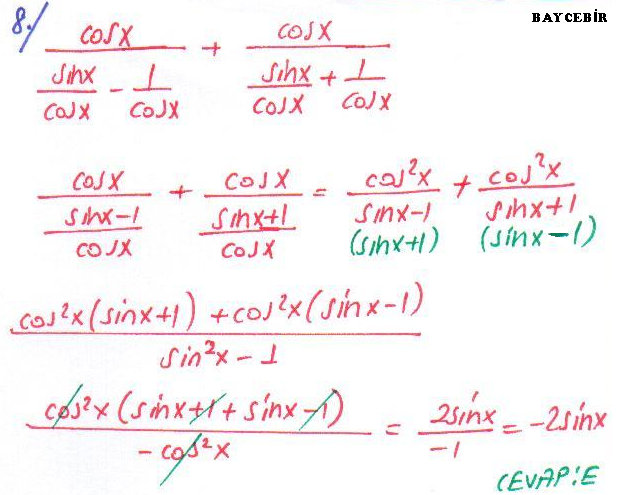 BAYCEBİR
8./ cosx/(sinx/cosx - 1/cosx) + cosx/(sinx/cosx + 1/cosx)
cosx/((sinx-1)/cosx) + cosx/((sinx+1)/cosx) = cos²x/(sinx-1) + cos²x/(sinx+1)
(sinx+1) (sinx-1)
(cos²x(sinx+1) + cos²x(sinx-1))/(sin²x-1)
(cos²x(sinx+1+sinx-1))/(-cos²x) = 2sinx/-1 = -2sinx
CEVAP:E